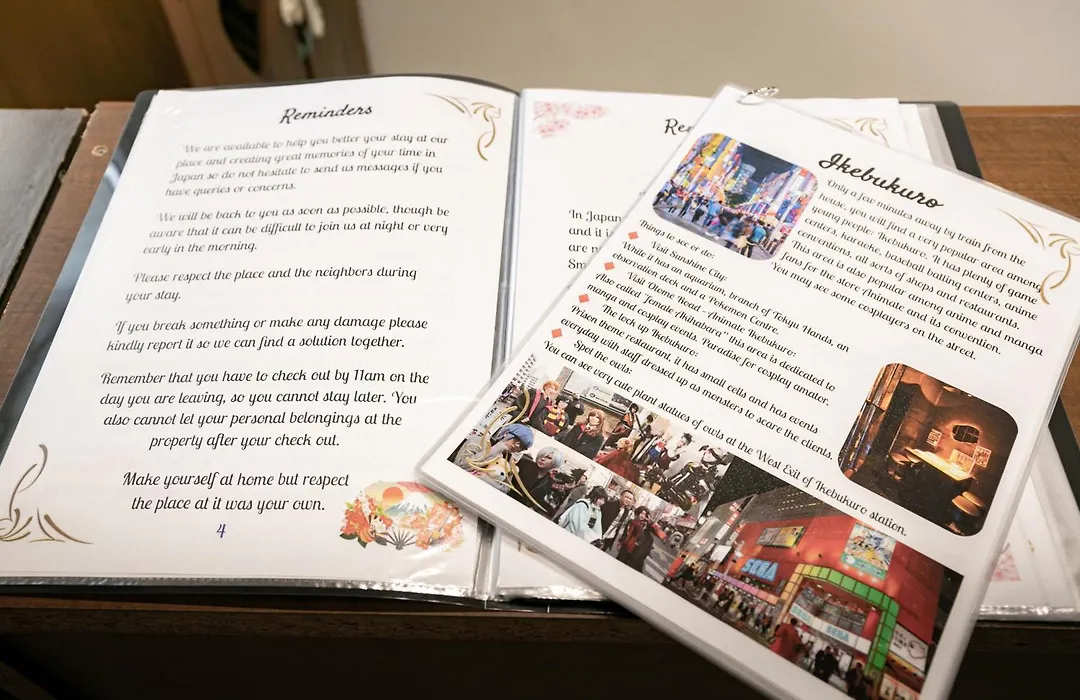 Reminders
We are available to help you better your stay at our
place and creating great memories of your time in
Japan so do not hesitate to send us messages if you
have queries or concerns.
We will be back to you as soon as possible, though be
aware that it can be difficult to join us at night or very
early in the morning.
Please respect the place and the neighbors during
your stay.
If you break something or make any damage please
kindly report it so we can find a solution together.
Remember that you have to check out by 11am on the
day you are leaving, so you cannot stay later. You
also cannot let your personal belongings at the
property after your check out.
Make yourself at home but respect
the place at it was your own.
4
In Japan
and it is
are
Ikebukuro
Only a few minutes away by train from the
house, you will find a very popular area among
young people: Ikebukure. It has plenty of game
centers, karaoke, baseball batting centers, anime
conventions, all sorts of shops and restaurants.
This area is also popular among anime and manga
fans for the store Animate and its convention.
You may see some cosplayers on the street.
Things to see or do:
Visit Sunshine City:
While it has an aquarium, branch of Tokyu Hands, an
observation deck and a Pokemon Centre.
Visit Otome Road - Animate Ikebukuro:
Also called Akihabara" this area is dedicated to
manga and cosplay events. Paradise for cosplay amator.
The lock up Ikebukuro:
Prison theme restaurant, it has small cells and has events
everyday with staff dressed up as monsters to scare the clients.
Spot the owls:
You can see very cute plant statues of owls at the West Exit of Ikebukuro station.
SEGA
SEGA